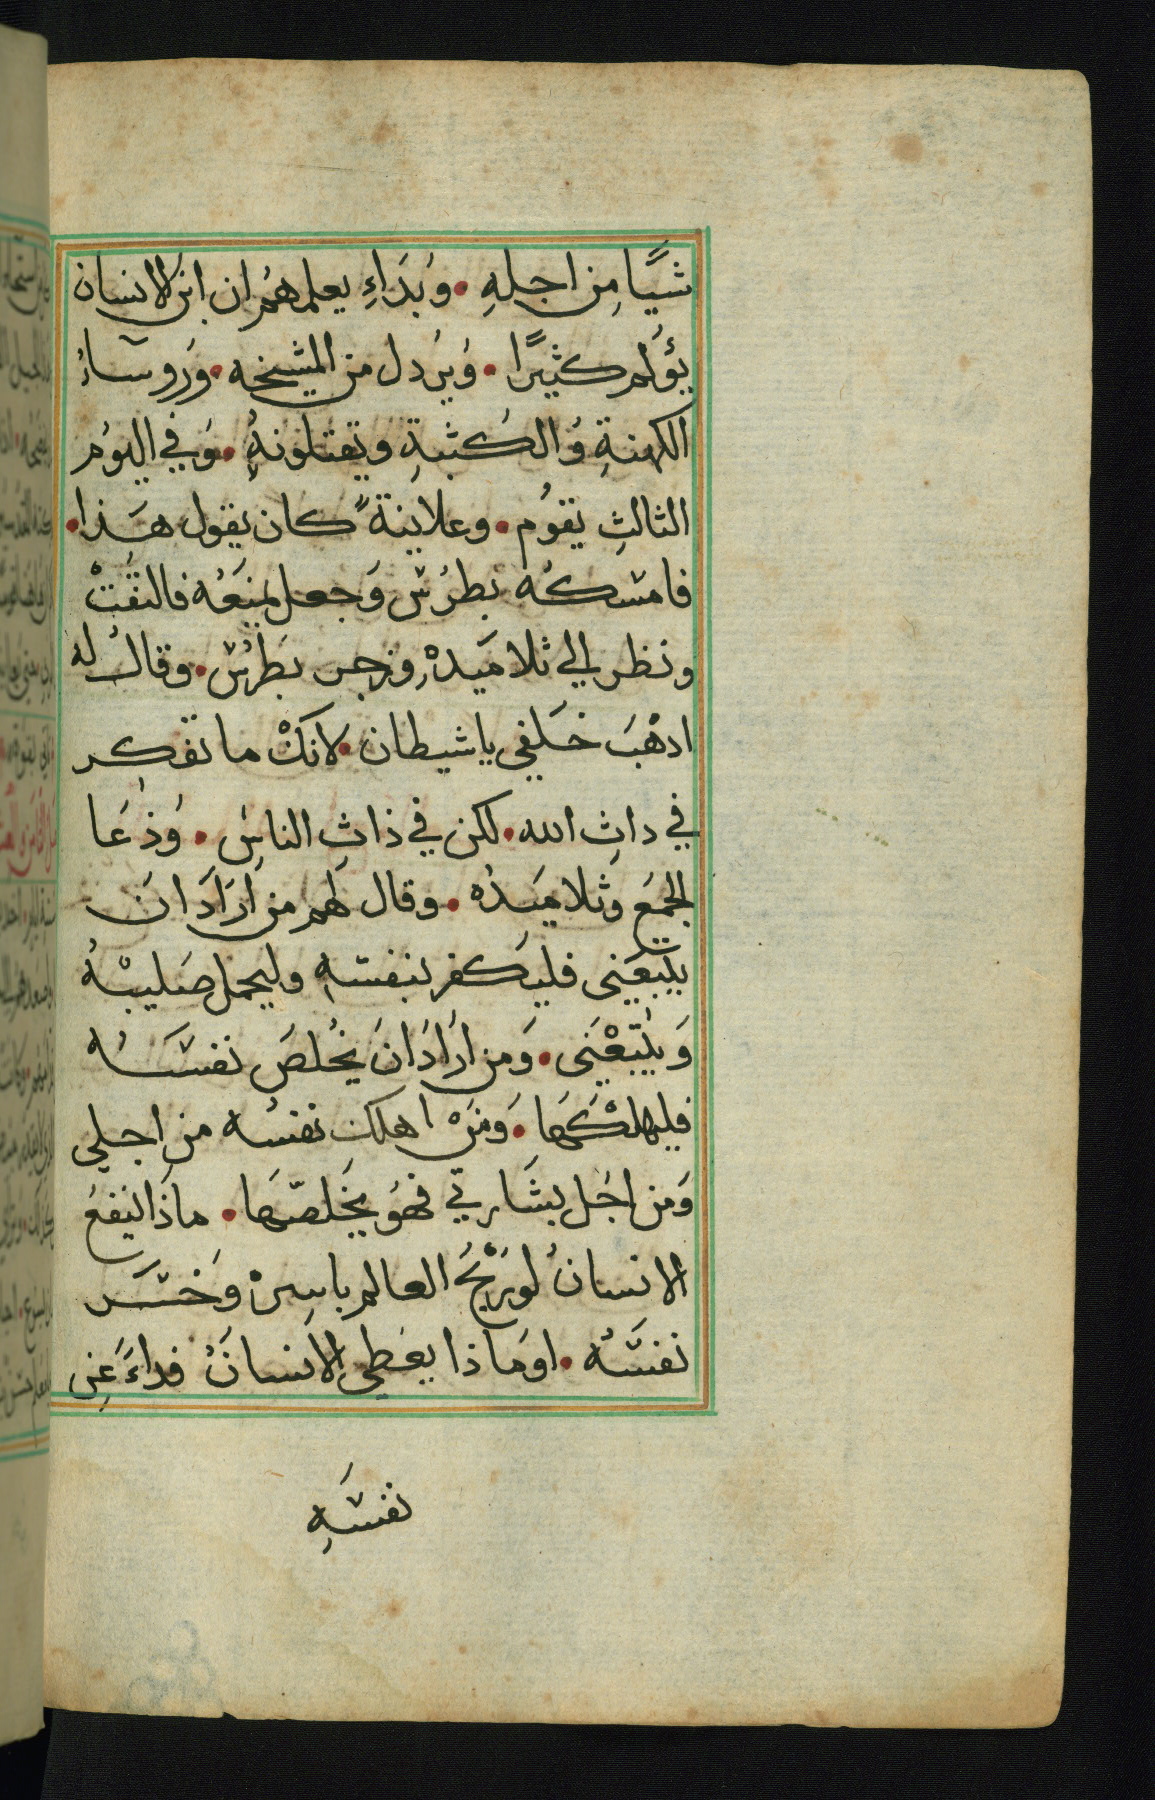 شيًا مِن اجلهِ • وَبَدَاءِ يعلمهُم ان ابن الانسان
يؤلم كثيرًا • وَيردل من المشيخه • وَروساءُ
الكهنةِ وَالكتبةِ وتقتلونهُ • وَفي اليوُم
الثالثِ يقوُم • وعلانيةً كان يقول هَذا •
فامسكهُ بطرُس وَجعل يمنعَهُ فالتفتْ
ونظر الي تلاميَدهْ وزجر بَطرُس • وقالُ له
ادهْبَ خَلفي ياشيطان • لانكْ ما تفكِر
في داتِ الله • لكن في ذاتِ الناسِ • وَدعَا
الجمَعَ وَتلاميَدُه • وقال لَهم من اَرَادَ انَ
يتبَعَني فليَكفر بنفسَهِ وليحمل صَليبهُ
وَيتبعْنَى • وَمن ارَادَ انَ يخُلصَ نفسَهُ
فليهلْكَهَا • وَمنَ اهلك نفسُه من اجلي
وَمن اجَل بشَارتي فهوَ يخَلصّهَا • ماذَا ينفعُ
الانسانُ لوَرَبْحُ العالم باسِرهْ وَخسَر
نفسَهُ • اومَاذا يعَطي الانسانُ فداءَ عَنِ
نفسَهِ